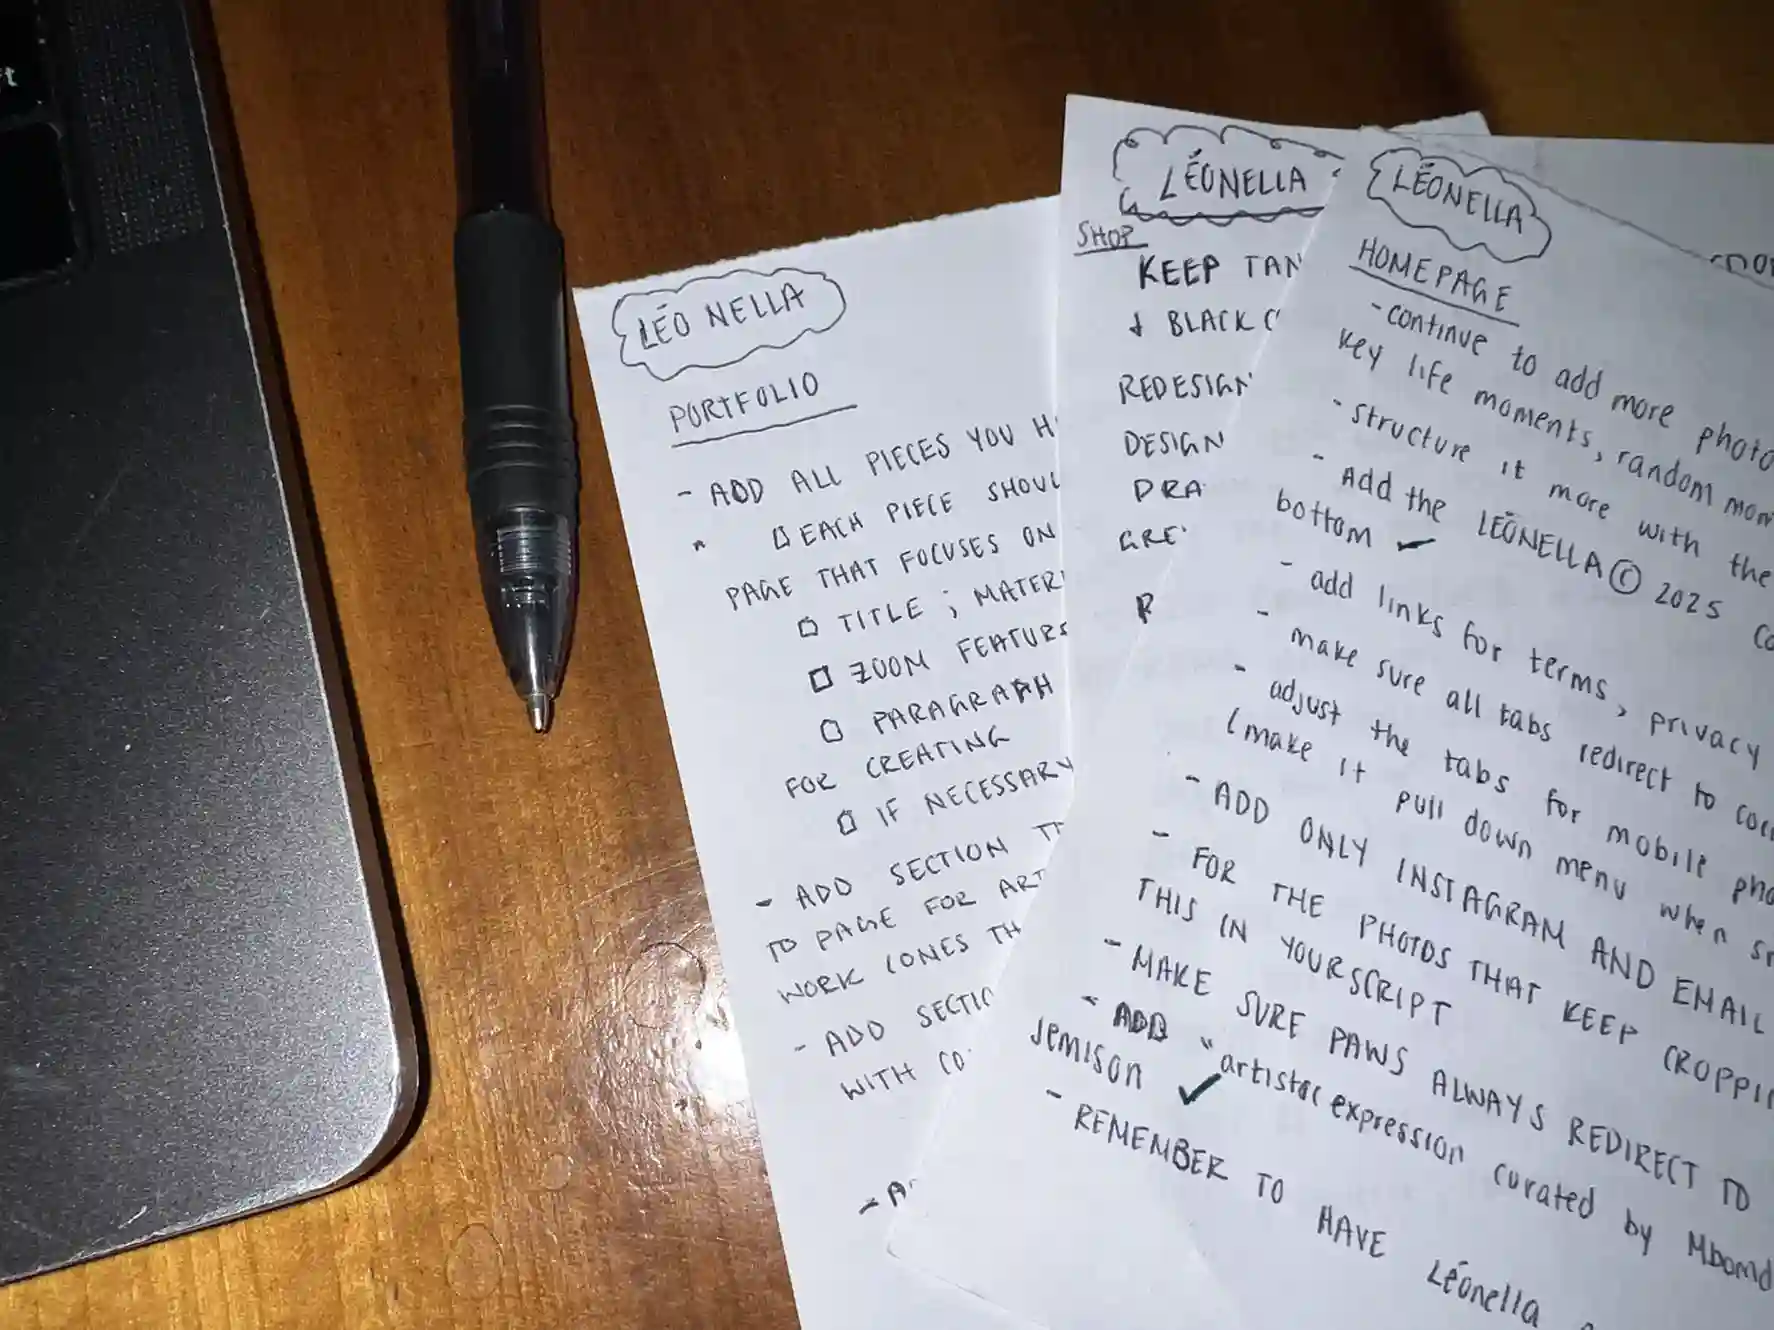 ft
LÉO NELLA
PORTFOLIO
- ADD ALL PIECES YOU H
EACH PIECE SHOUL
PAGE THAT FOCUSES ON
TITLE ; MATERI
ZOOM FEATURE
PARAGRAPH
FOR CREATING
IF NECESSARY
- ADD SECTION TH
TO PAGE FOR ART
WORK (ONES TH
- ADD SECTIO
WITH CO
- A
LÉONELLA
SHOP
KEEP TAN
& BLACK C
REDESIGN
DESIGN
DRA
GRE
R
LÉONELLA
HOMEPAGE
- continue to add more photo
key life moments, random mom
- structure it more with the
- Add the LÉONELLA © 2025 co
bottom ✓
- add links for terms, privacy
- make sure all tabs redirect to corr
- adjust the tabs for mobile pho
(make it pull down menu when sm
- ADD ONLY INSTAGRAM AND EMAIL
- FOR THE PHOTOS THAT KEEP CROPPIN
THIS IN YOURSCRIPT
- MAKE SURE PAWS ALWAYS REDIRECT TO
- ADD "artistic expression curated by Mbomd
Jemison ✓
- REMEMBER TO HAVE Léonella